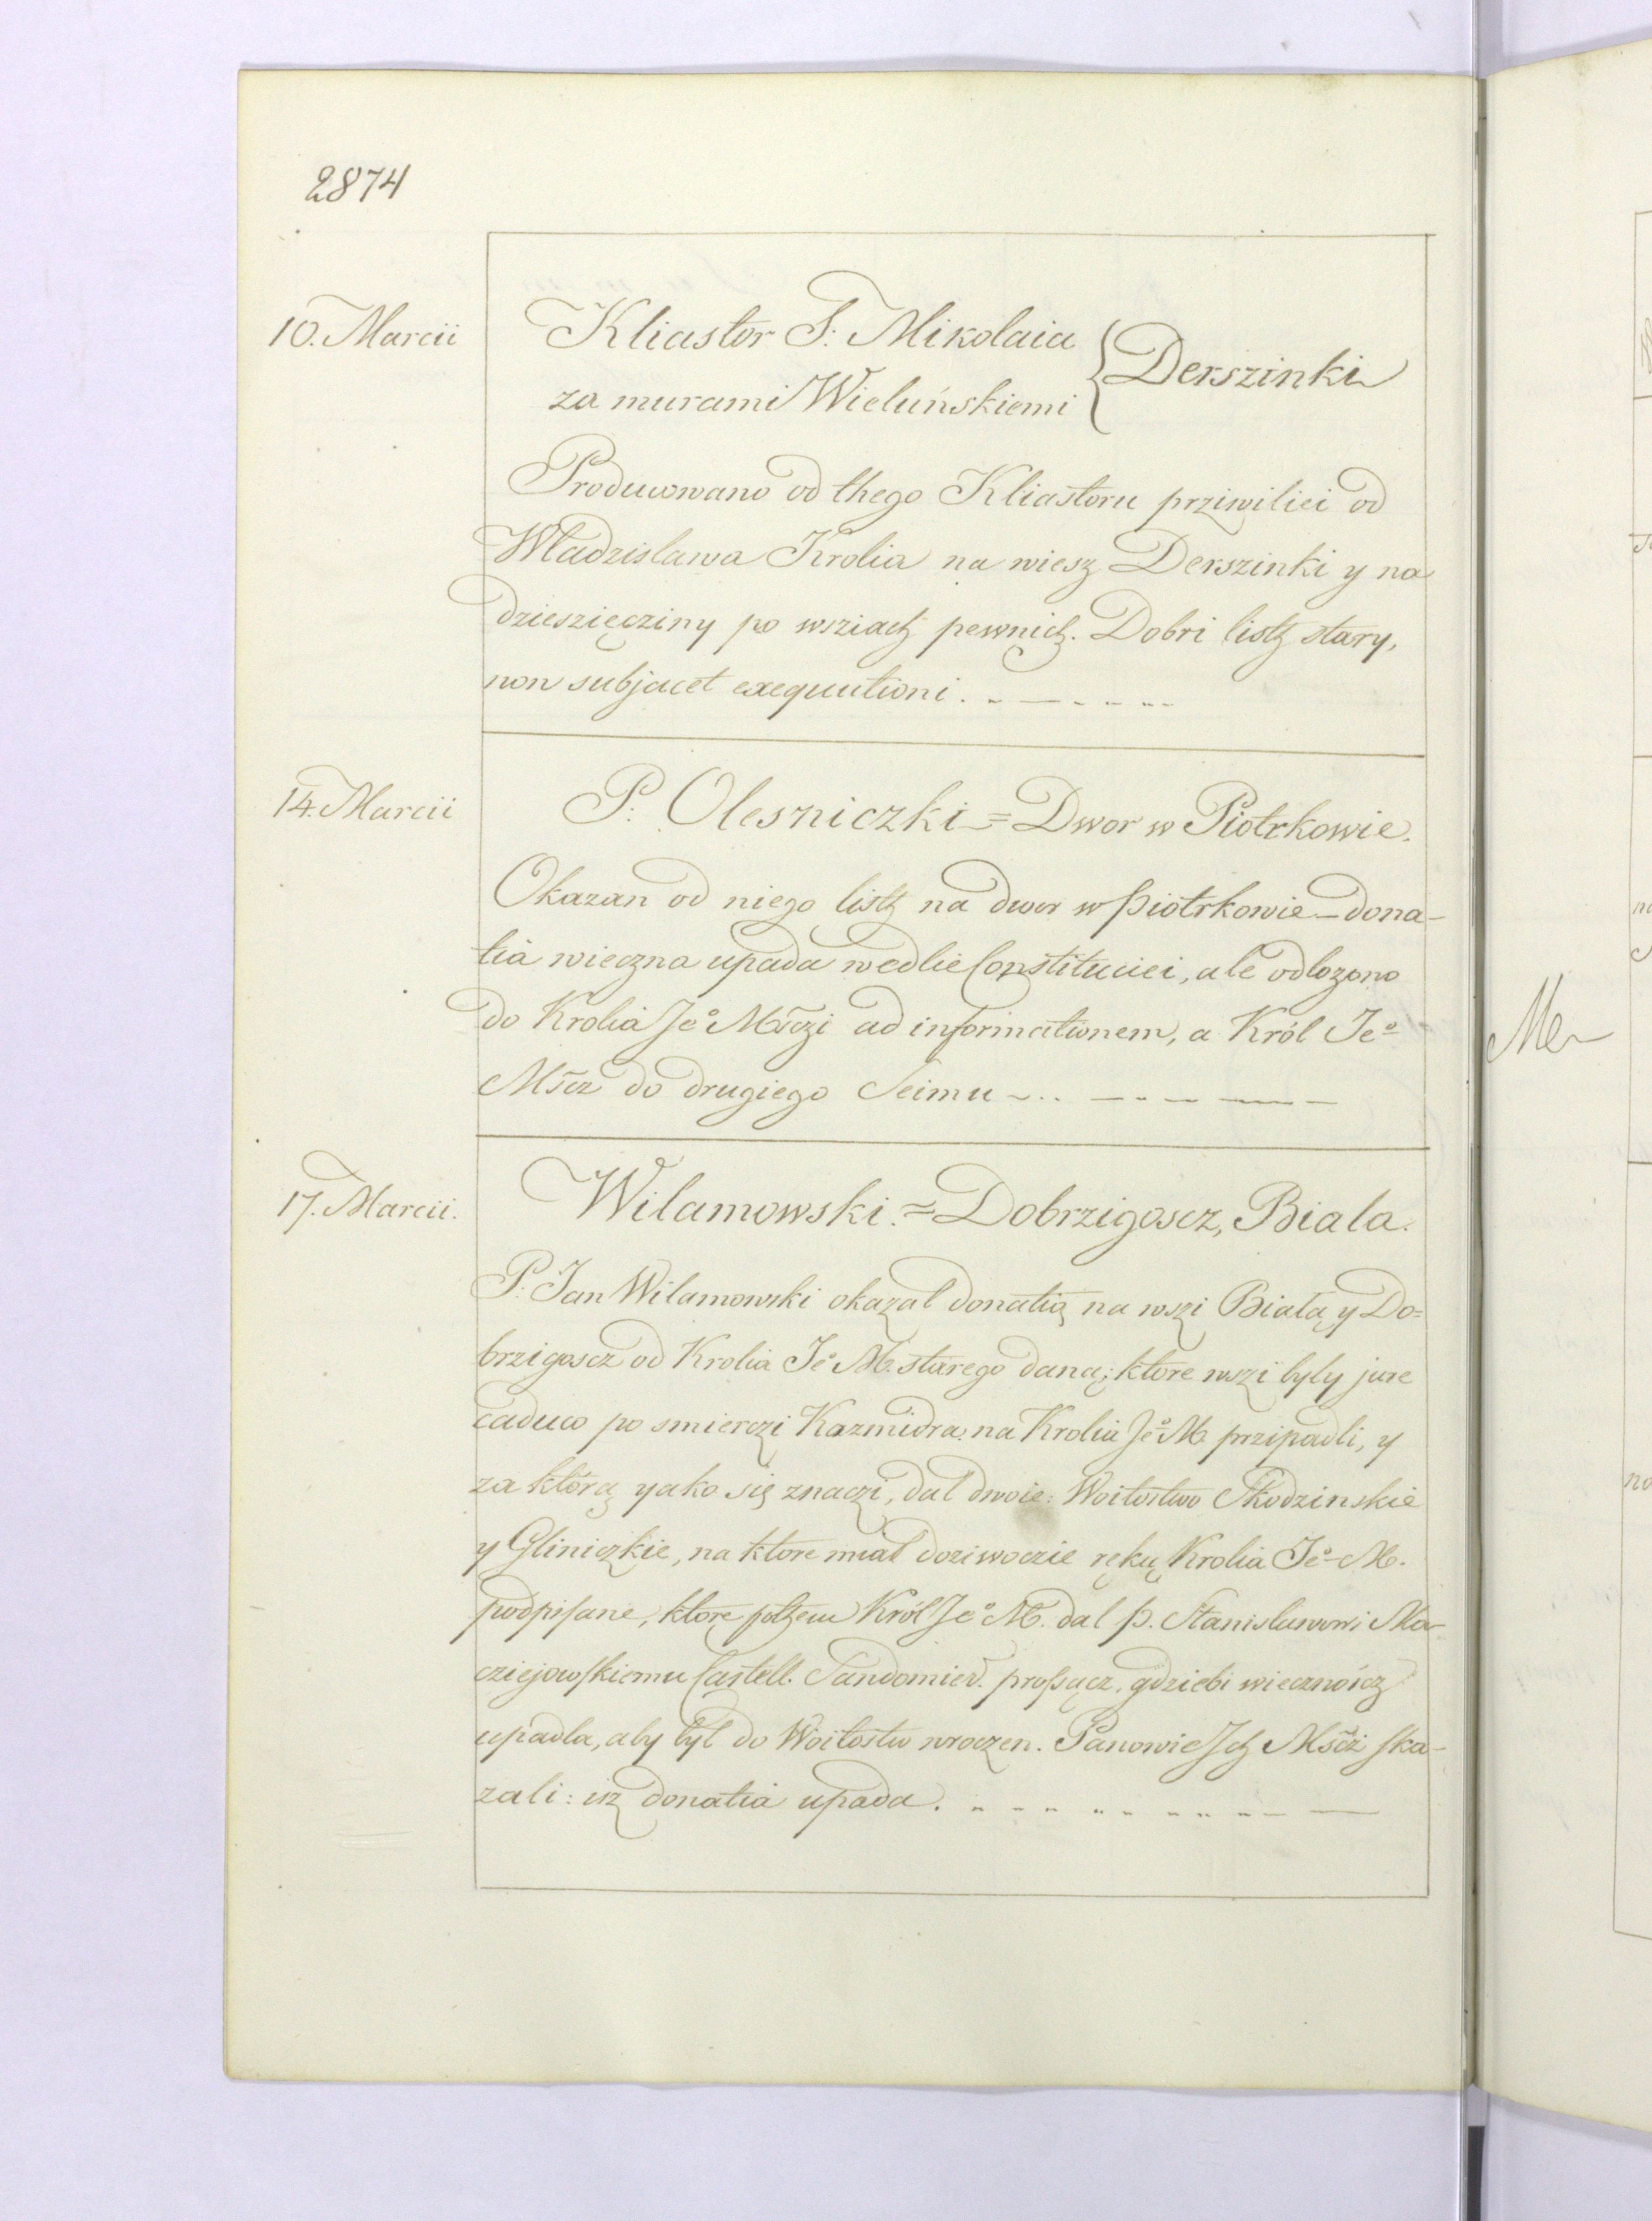 2874
10. Marcii
Kliastor S. Mikolaia
za murami Wieluńskiemi } Derszinki
Producowano od thego Kliastoru prziwiliei od
Wladzislawa Krolia na wiesz Derszinki y na
dzieszięcziny po wsziach pewnich. Dobri listh stary,
non subjacet exequutioni.
14. Marcii
P. Olesniczki = Dwor w Piotrkowie.
Okazan od niego listh na dwor w Piotrkowie – dona-
tia wieczna upada wedlie Constituciei, ale odlozono
do Krolia Jeº Mśczi ad informationem, a Król Jeº
Mścz do drugiego Seimu
17. Marcii.
Wilamowski. = Dobrzigoscz, Biala.
P. Jan Wilamowski okazal donatią na wszi Bialą y Do=
brzigoscz od Krolia Jeº M. starego daną; ktore wszi byly jure
caduco po smierczi Kazmidra: na Krolia Jeº M. przipadli, y
za którą yako się znaczi, dal dwoie: Woitostwo Skodzinskie
y Gliniczkie, na ktore mial doziwoczie ręką Krolia Jeº M.
podpisane, ktore potzem Król Jeº M. dal p. Stanislawowi Ma-
cziejowskiemu Castell. Sandomier. prosząc, gdziebi wiecznoscz
upadla, aby byl do Woitostw wroczen. Panowie Ich Mścz ska-
zali: isz donatia upada.
Me